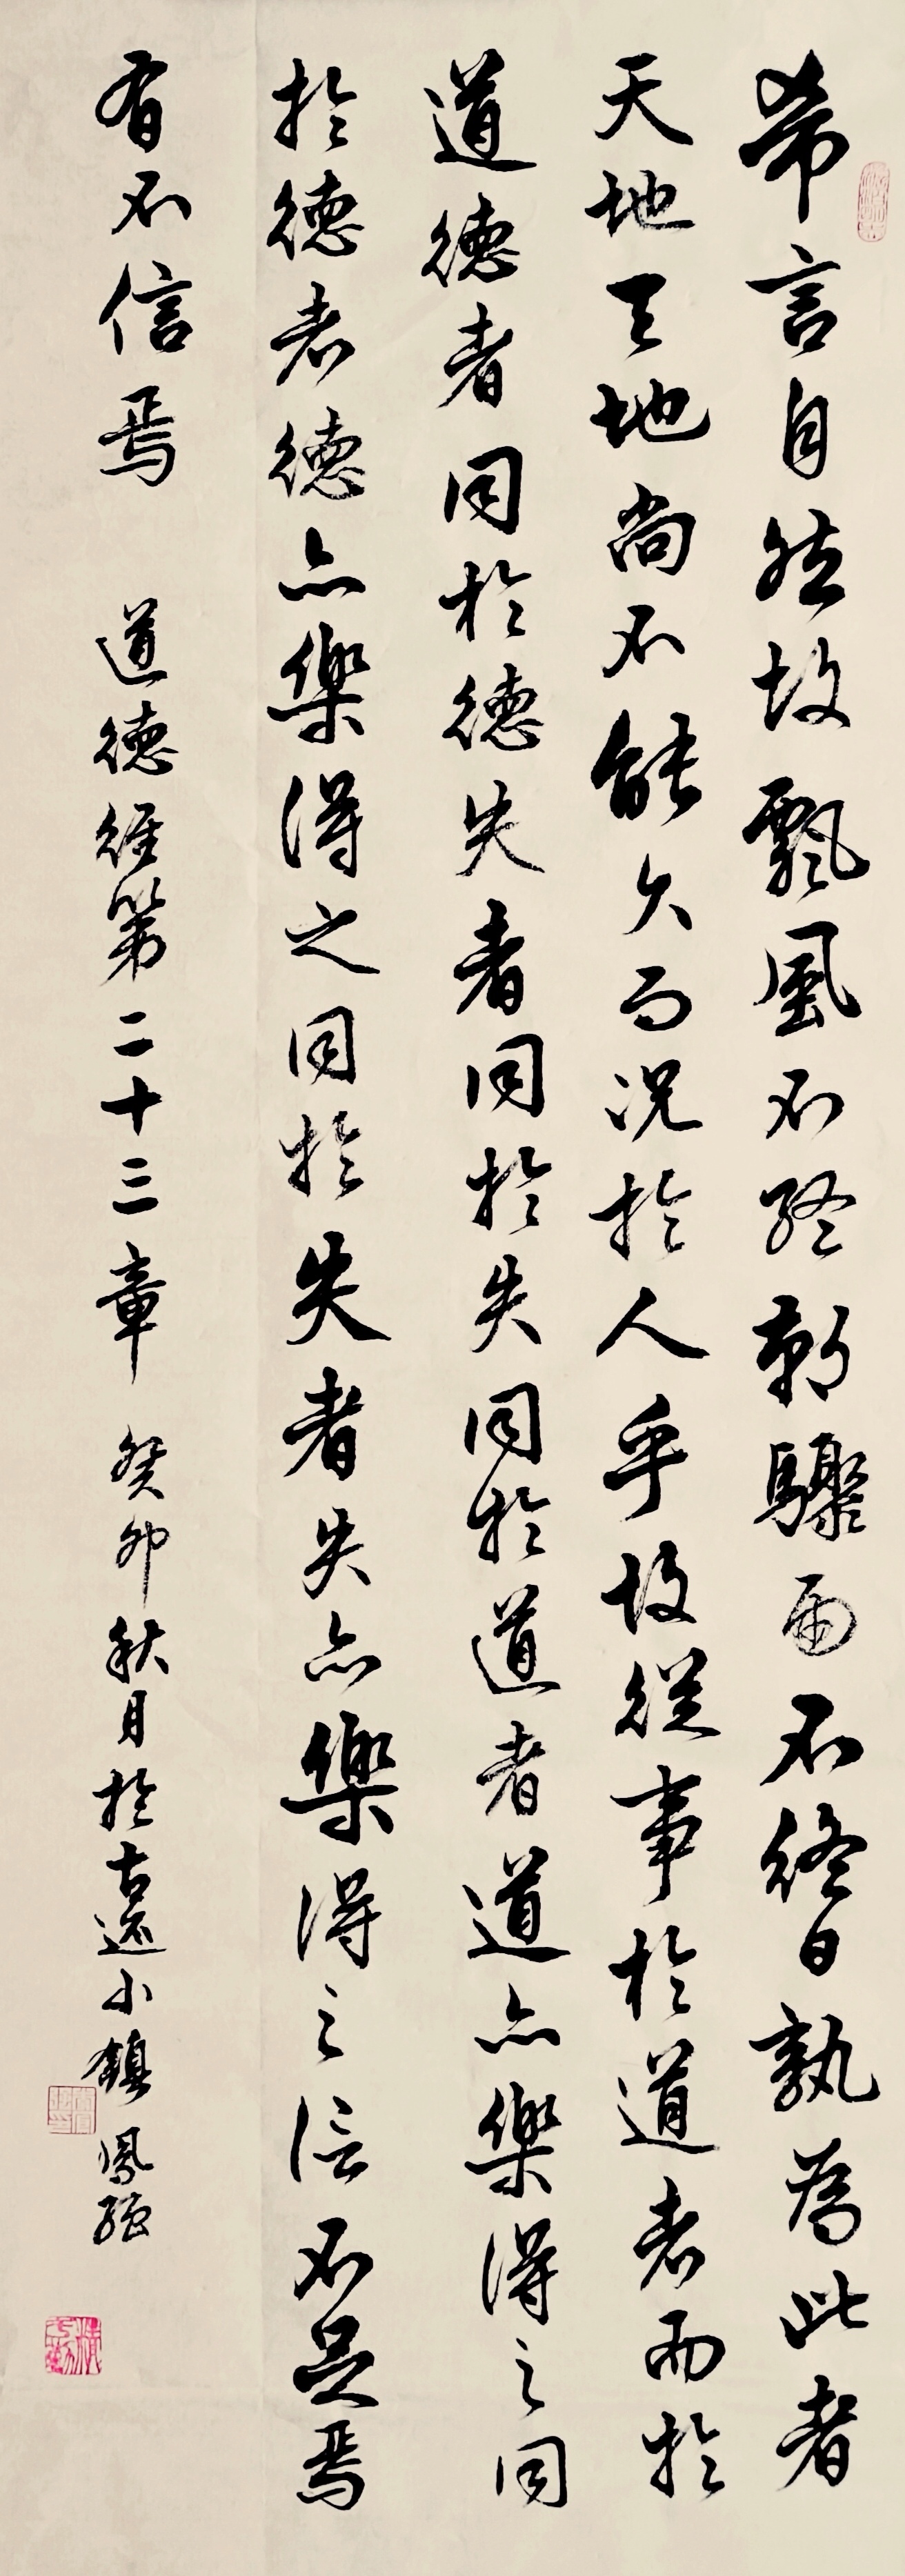 希言自然故飄風不終朝驟雨不終日孰為此者
天地天地尚不能久而况於人乎故從事於道者而於
道德者同於德失者同於失同於道者道亦樂得之同
於德者德亦樂得之同於失者失亦樂得之信不足焉
有不信焉 道德經第二十三章 癸卯秋月於古還小鎮 鳳強